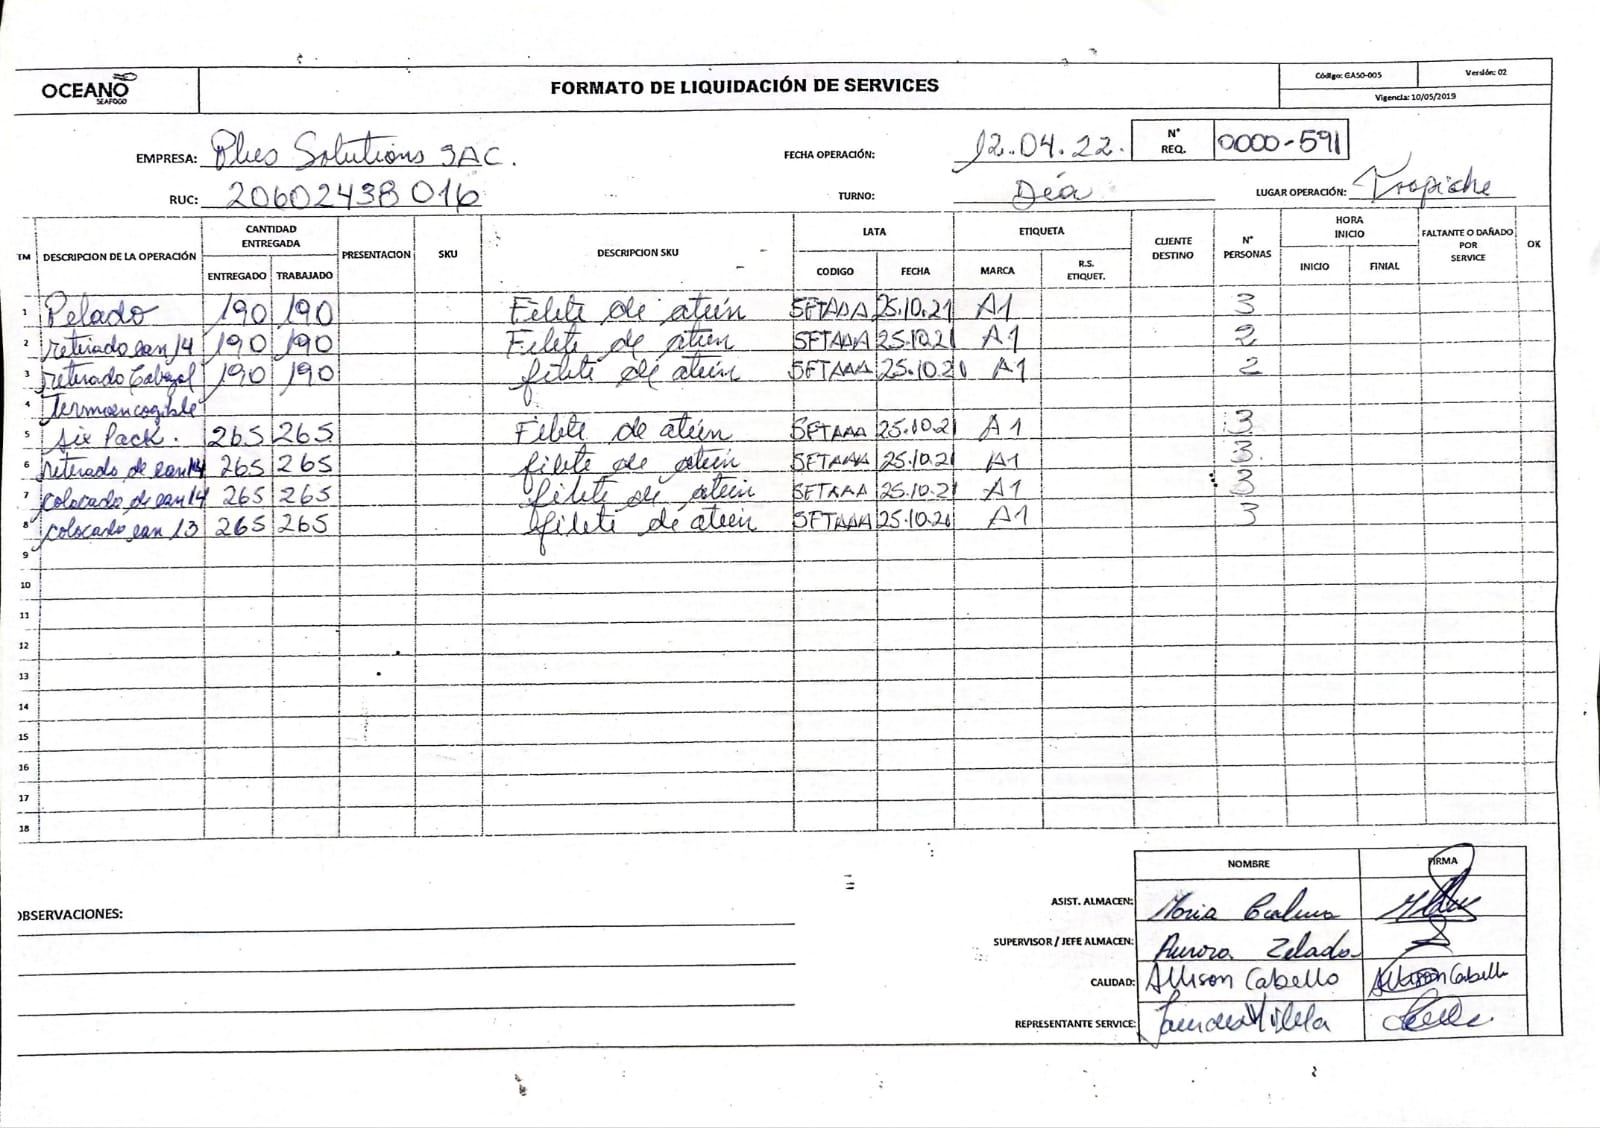 OCEANO
SEAFOOD
FORMATO DE LIQUIDACIÓN DE SERVICES
Código: GASO-005
Versión: 02
Vigencia: 10/05/2019
EMPRESA: Plus Solutions SAC.
FECHA OPERACIÓN: 12.04.22.
N° REQ. 0000-591
RUC: 20602438016
TURNO: Día
LUGAR OPERACIÓN: Trapiche
TM DESCRIPCION DE LA OPERACIÓN CANTIDAD ENTREGADA ENTREGADO TRABAJADO PRESENTACION SKU DESCRIPCION SKU LATA CODIGO FECHA ETIQUETA MARCA R.S. ETIQUET. CLIENTE DESTINO N° PERSONAS HORA INICIO INICIO FINIAL FALTANTE O DAÑADO POR SERVICE OK
1 Pelado 190 190 Filete de atún SFTADA 25.10.21 A1 3
2 retirado ean 14 190 190 Filete de atún SFTAAA 25.10.21 A1 2
3 retirado Cabezal 190 190 filete de atún SFTAAA 25.10.21 A1 2
4 Termoencogible
5 six Pack. 265 265 Filete de atún SFTAAA 25.10.21 A1 3
6 retirado de ean 14 265 265 filete de atún SFTAAA 25.10.21 A1 3.
7 colocado de ean 14 265 265 filete de atún SFTAAA 25.10.21 A1 3
8 colocado ean 13 265 265 filete de atún SFTAAA 25.10.21 A1 3
9
10
11
12
13
14
15
16
17
18
NOMBRE FIRMA
OBSERVACIONES:
ASIST. ALMACEN: Maria
SUPERVISOR / JEFE ALMACEN: Aurora Zelada
CALIDAD: Allison Cabello Allison Cabello
REPRESENTANTE SERVICE: Vilela